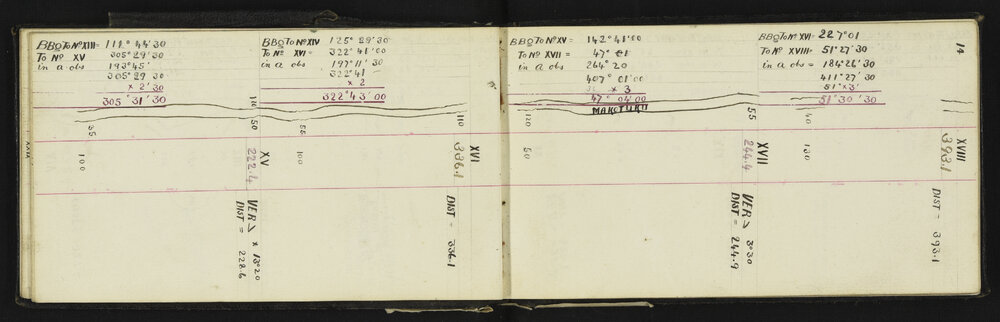 BBO To No XIII = 111° 44' 30
To No XV 305° 29' 30
in a obs 193° 45'
305° 29' 30
× 2' 30
305° 31' 30
BBO To No XIV 125° 29' 30
To No XVI = 322° 41' 00
in a obs 197° 11' 30
322° 41' –
× 2
322° 43' 00
BBO To No XV = 142° 41' 00
To No XVII = 47° 01
in a obs 264° 20
407° 01' 00
× 3
47° 04' 00
MAKOTUKU
BBO To No XVI = 227° 01
To No XVIII = 51° 27' 30
in a obs = 184° 26' 30
411° 27' 30
51° × 3'
51° 30' 30
14
35
100
100
50
XV
222.4
VER > × 13° 20
DIST = 228.6
55
100
110
XVI
336.1
DIST = 336.1
120
50
55
XVII
244.4
VER > 3° 30
DIST = 244.9
40
130
XVIII
393.1
DIST = 393.1